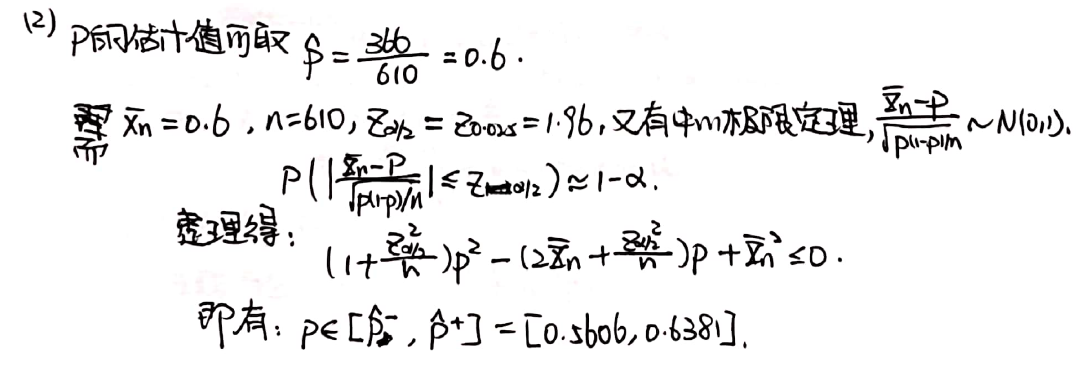 (2) p的估计值可取 p̂ = 366/610 = 0.6.
而 x̄n = 0.6, n=610, z_{α/2} = z_{0.025} = 1.96, 又有中心极限定理, (X̄n-p)/√(p(1-p)/n) ~ N(0,1).
P(|(X̄n-p)/√(p(1-p)/n)| ≤ z_{α/2}) ≈ 1-α.
整理得:
(1+z²_{α/2}/n)p² - (2X̄n + z²_{α/2}/n)p + X̄n² ≤ 0.
即有: p∈[p̂⁻, p̂⁺] = [0.5606, 0.6381].